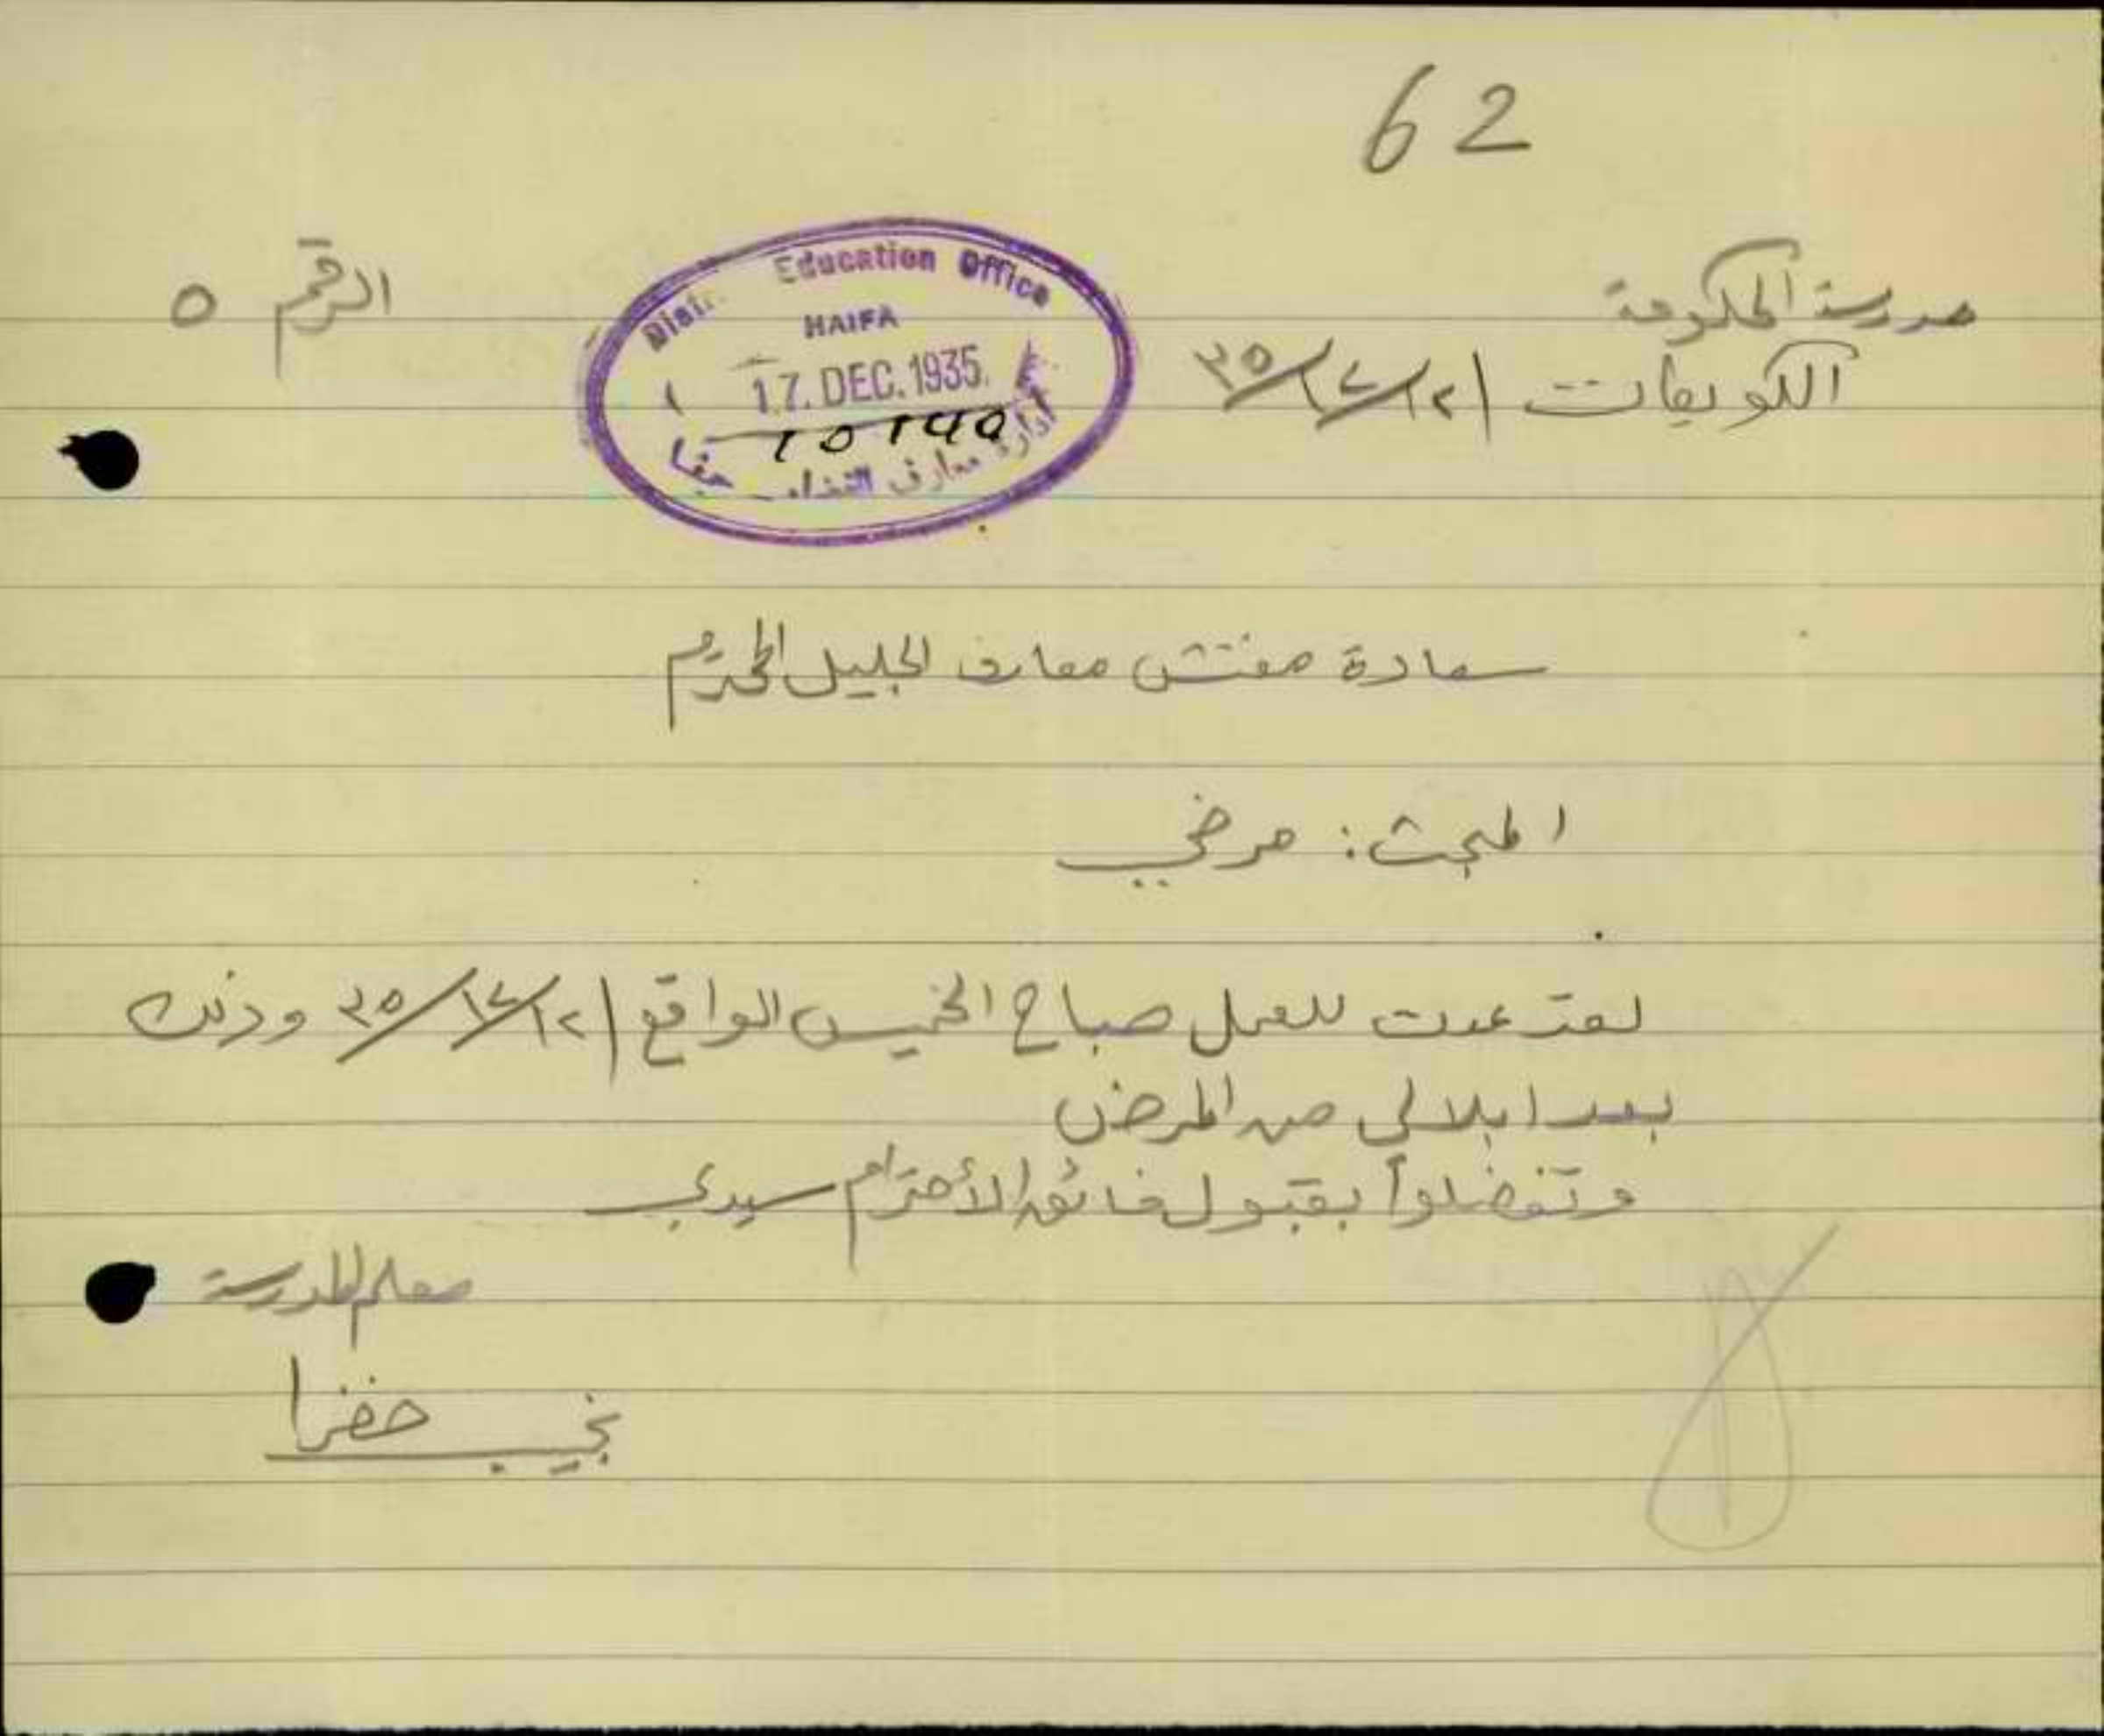 62
مدرسة الحكومة
الرقم ٥
الكويفات ١٢/١٢/٣٥
Education Office
HAIFA
17. DEC. 1935.
ادارة معارف القضاء حيفا
سعادة مفتش معارف الجليل المحترم
المبحث : مرضي
لقد عدت للعمل صباح الخميس الواقع ١٢/١٢/٣٥ وذلك
بعد ابلالي من المرض
وتفضلوا بقبول فائق الأحترام سيدي
معلم المدرسة
نجيب خضرا